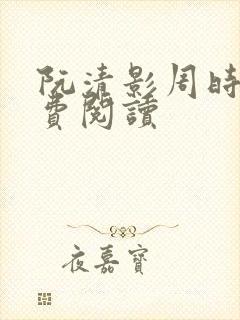 阮清影周時
費閱讀
夜嘉寶